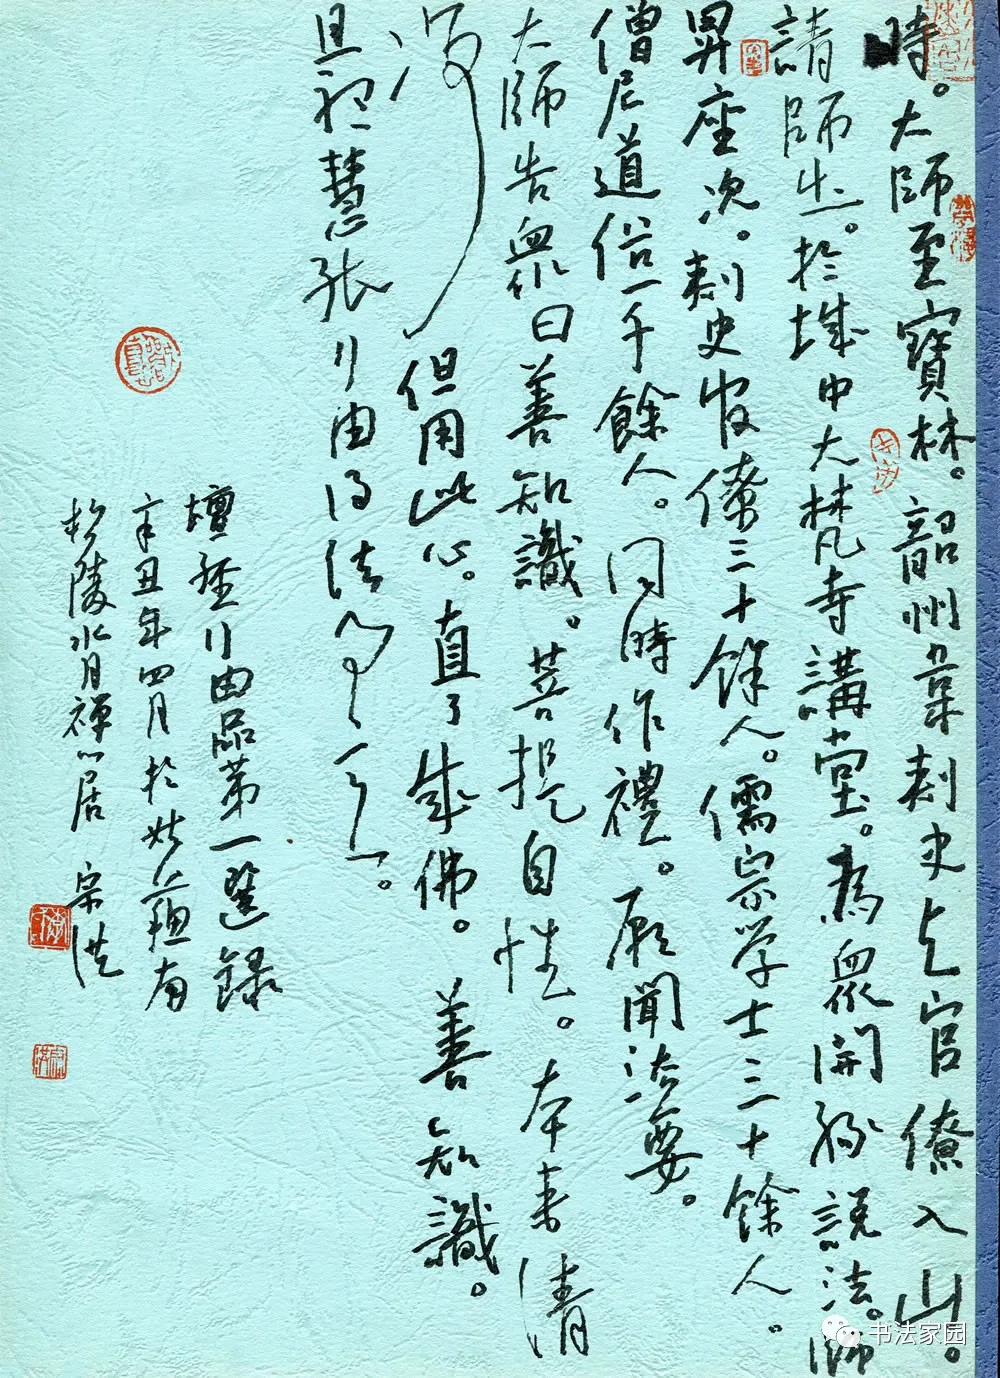 時。大師至寶林。韶州韋刺史与官僚入山。
請師出。於城中大梵寺講堂。為眾開緣說法。師
昇座次。刺史官僚三十餘人。儒宗学士三十餘人。
僧尼道俗一千餘人。同時作禮。願聞法要。
大師告眾曰善知識。菩提自性。本來清
淨但用此心。直了成佛。善知識。
且聽慧能行由得法事意。
壇經行由品第一選錄
辛丑年四月於姑蘇南
松陵水月禪心居 宗洪
书法家园